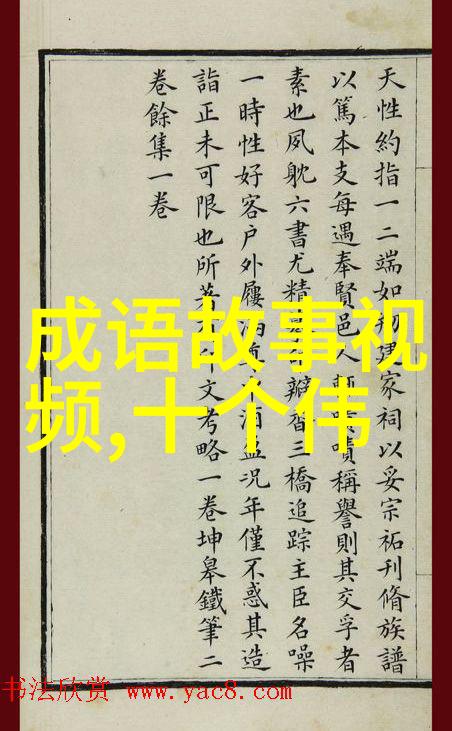 天性約指一二端如建家祠以妥宗祏刊脩族譜
以篤本支每遇奉賢邑人嘖稱譽則其交孚者
素也夙躭六書尤精三橋追踪主臣名噪
一時性好客户外屨滿況年僅不惑其造
詣正未可限也所文考略一卷坤皋鐵筆二
卷餘集一卷
成语故事视
频,十个伟
书法欣赏 www.yac8.com